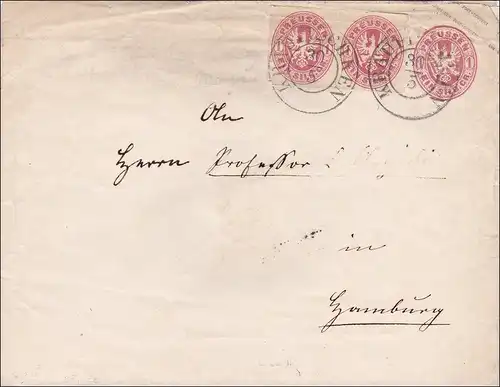 PREUSSEN 1 EIN SILB.GR. 1
PREUSSEN 1 EIN SILB.GR. 1
PREUSSEN 1 EIN SILB.GR. 1
An
Herrn Professor
in
Hamburg